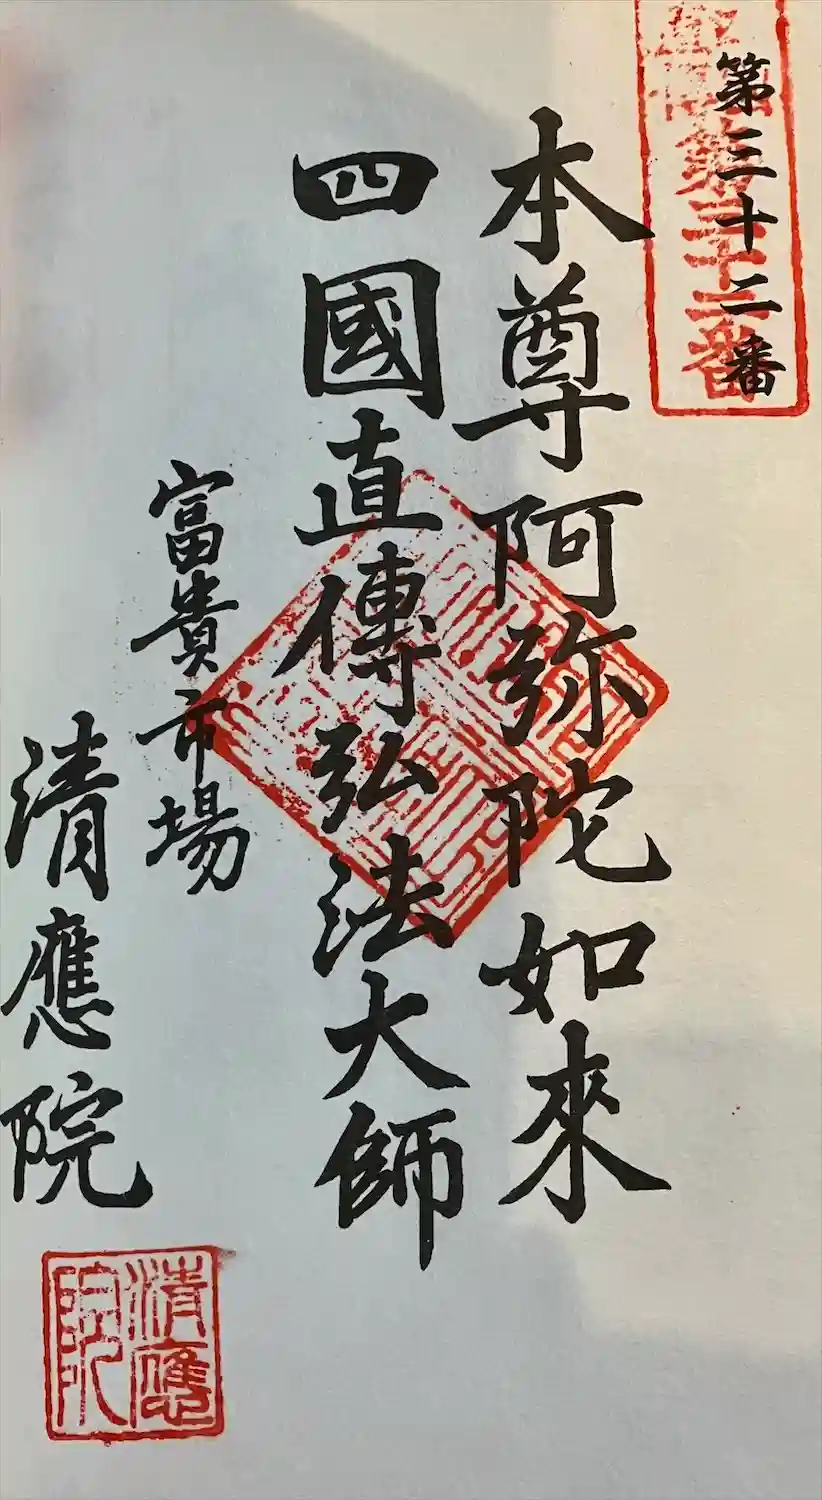 第三十二番
第三十二番
本尊阿弥陀如來
四國直傳弘法大師
富貴市場
清應院
清應院